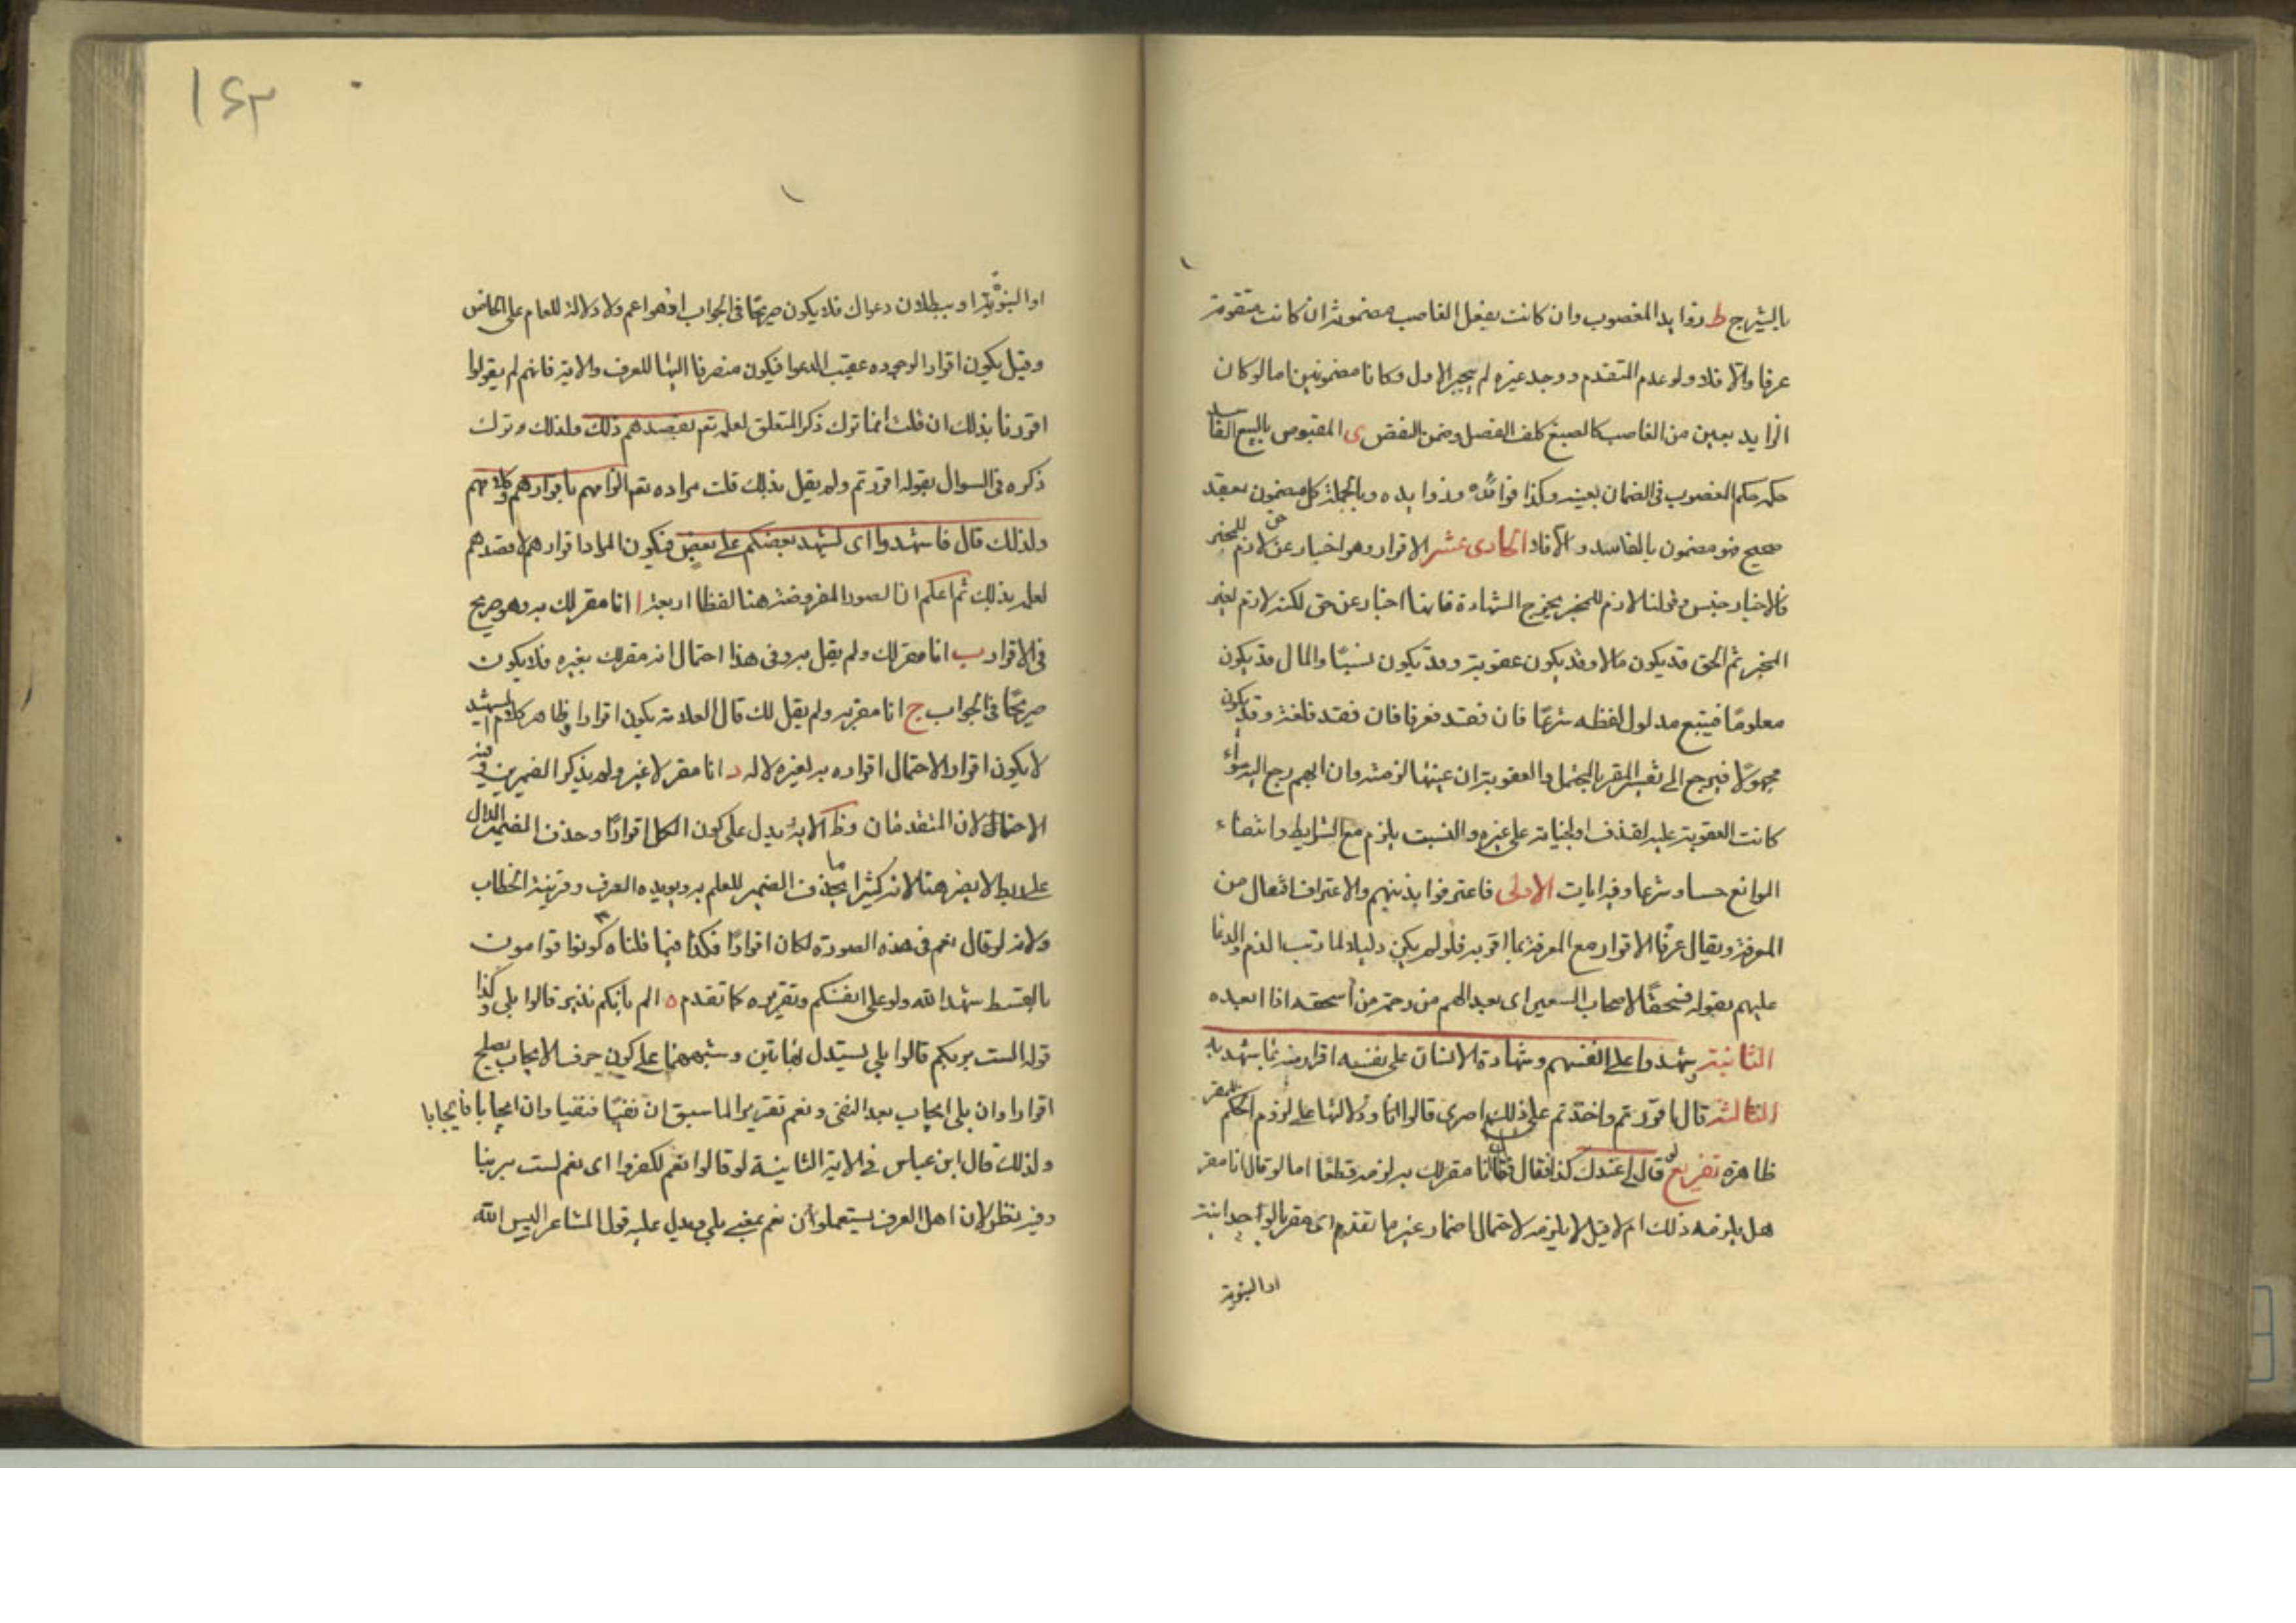 بالشيرج ط زوايد المغصوب وان كانت بفعل الغاصب مضمونة ان كانت متقومة
عرفا والا فلا ولو عدم المتقدم ووجد غيره لم يجبر الاول وكانا مضمونين اما لو كان
الزايد بعين من الغاصب كالصبغ كلف الفصل وضمن النقص ى المقبوض بالبيع الفاسد
حكمه حكم المغصوب فى الضمان بعينه وكذا فوائده وزوايده وبالجملة كل مضمون بعقد
صحيح فهو مضمون بالفاسد و الا فلا الحادى عشر الاقرار وهو اخبار عن حق لازم للمخبر
فالاخبار جنس وقولنا لازم للمخبر يخرج الشهادة فانها اخبار عن حق لكنه لازم لغير
المخبر ثم الحق قد يكون مالا وقد يكون عقوبة وقد يكون نسبًا والمال قد يكون
معلومًا فيتبع مدلول لفظه شرعًا فان فقد فعرفا فان فقد فلغة وقد يكون
مجهولًا فيرجع الى تفسير المقر بالمحتمل والعقوبة ان عينها لزمته وان ابهم رجع اليه سواء
كانت العقوبة عليه لقذف او لجناية على غيره والنسب يلزم مع الشرايط وانتفاء
الموانع حسا وشرعا وفيه ايات الاولى فاعترفوا بذنبهم والاعتراف افتعال من
المعرفة ويقال عرفًا الاقرار مع المعرفة بما اقر به فلو لم يكن دليلا لما رتب الذم والدعا
عليهم بقوله فسحقًا لاصحاب السعير اى بعدا لهم من رحمته من أسحقه اذا ابعده
الثانية وشهدوا على انفسهم وشهادة الانسان على نفسه اقرار منه بما شهد به
الثالثة قال ءاقررتم واخذتم على ذلكم اصرى قالوا اقررنا ودلالتها على لزوم الحكم للمقر
ظاهرة تفريع لو قال لى عندك كذا فقال انا مقر لك به لزمه قطعًا اما لو قال انا مقر
هل يلزمه ذلك ام لا قيل لا يلزمه لاحتمال اضمار غير ما تقدم اى مقر بالواحدانية
او النبوية
١٤٣
او النبوية او ببطلان دعواك فلا يكون صريحًا فى الجواب اذ هو اعم ولا دلالة للعام على الخاص
وقيل يكون اقرارا لوجوده عقيب الدعوا فيكون منصرفا اليها للعرف وللاية فانهم لم يقولوا
اقررنا بذلك ان قلت انما ترك ذكر المتعلق لعلمه تعم بقصدهم ذلك ولذلك ترك
ذكره فى السوال بقوله اقررتم ولم يقل بذلك قلت مراده تعم الزامهم باقرارهم وكلامهم
ولذلك قال فاشهدوا اى ليشهد بعضكم على بعض فيكون المراد اقرارهم لا قصدهم
لعلمه بذلك ثم اعلم ان الصور المفروضة هنا لفظا اربعة ا انا مقر لك به وهو صريح
فى الاقرار ب انا مقر لك ولم يقل به وفى هذا احتمال انه مقر لك بغيره فلا يكون
صريحًا فى الجواب ج انا مقر به ولم يقل لك قال العلامة يكون اقرارا وظاهر كلام الشهيد
لا يكون اقرارا لاحتمال اقراره به لغيره لا له د انا مقر لا غير ولم يذكر الضميرين وفيه
الاحتمالان المتقدمان وظ الاية يدل على كون الكل اقرارًا وحذف الضمير الدال
على ربط لا يضر هنا لانه كثيرا ما يحذف الضمير للعلم به ويويده العرف وقرينة الخطاب
ولانه لو قال نعم فى هذه الصورة لكان اقرارًا فكذا فيما قلناه كونوا قوامين
بالقسط شهدا لله ولو على انفسكم وتقريره كما تقدم ه الم ياتكم نذير قالوا بلى وكذا
قوله الست بربكم قالوا بلى يستدل بهاتين وشبههما على كون حرف الايجاب يصلح
اقرارا وان بلى ايجاب بعد النفى ونعم تقرير لما سبق ان نفيًا فنفيا وان ايجابا فايجابا
ولذلك قال ابن عباس فى الاية الثانية لو قالوا نعم لكفروا اى نعم لست بربنا
وفيه نظر لان اهل العرف يستعملون نعم بمعنى بلى ويدل عليه قول الشاعر اليس الله